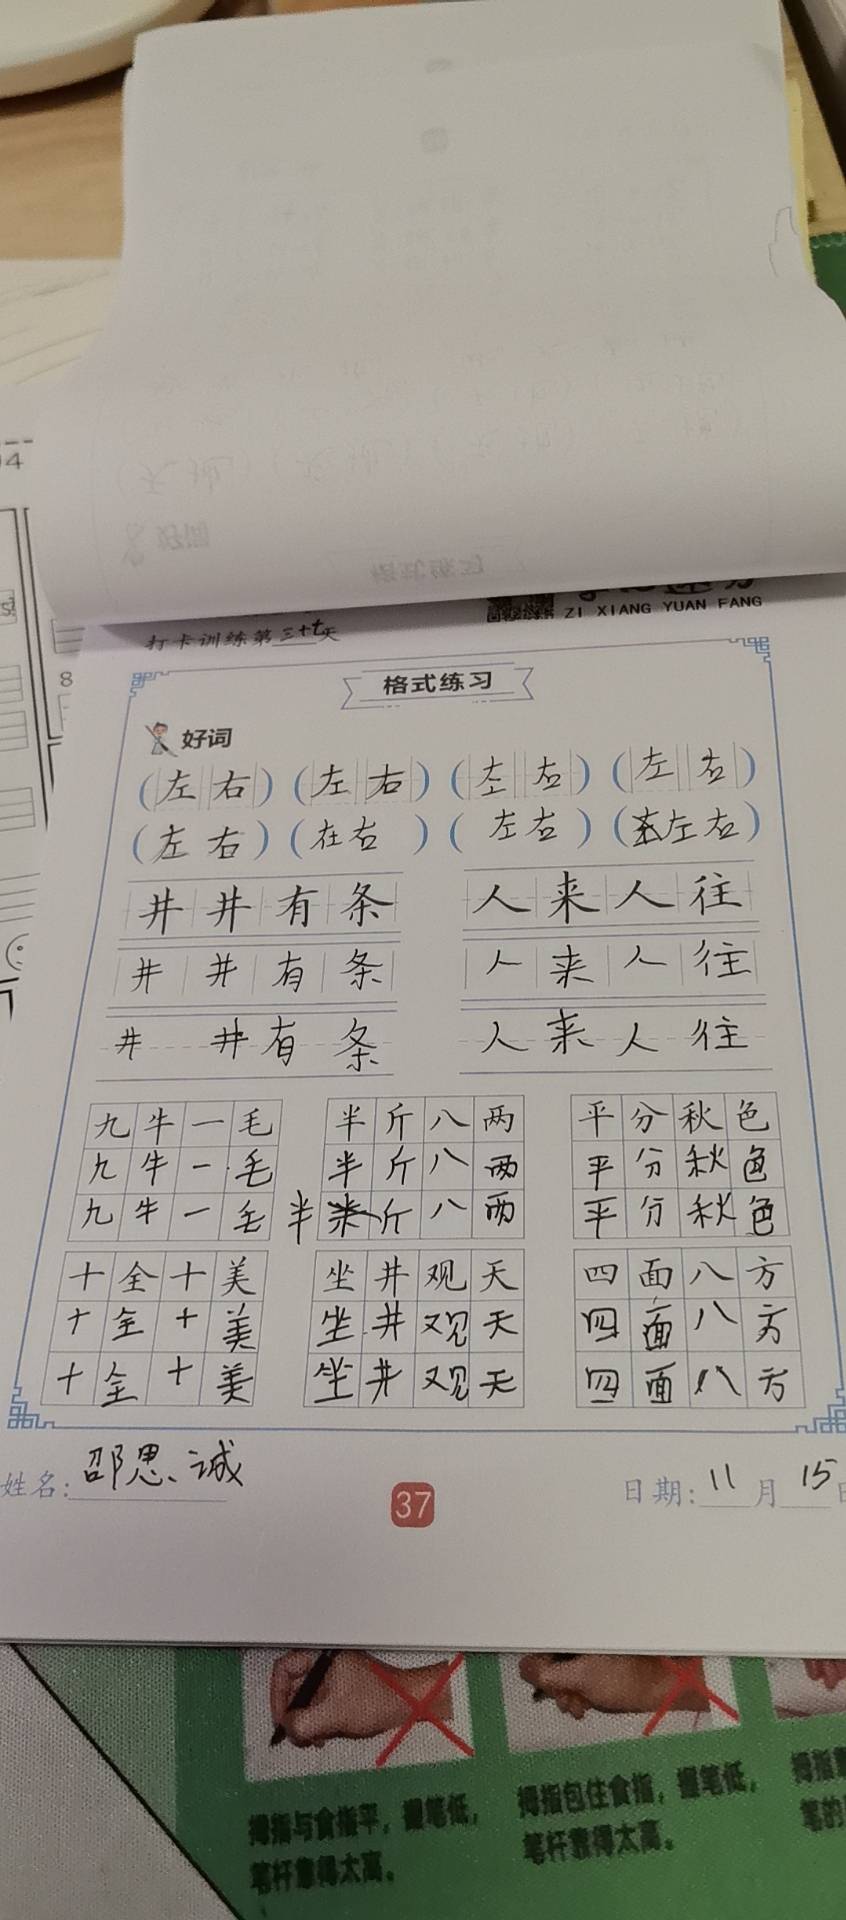 ZI XIANG YUAN FANG
打卡训练第三十七天
格式练习
好词
(左右)(左右)(左右)(左右)
(左右)(在右)(左右)(左右)
井井有条 人来人往
井井有条 人来人往
井井有条 人来人往
九牛一毛 半斤八两 平分秋色
九牛一毛 半斤八两 平分秋色
九牛一毛 半斤八两 平分秋色
十全十美 坐井观天 四面八方
十全十美 坐井观天 四面八方
十全十美 坐井观天 四面八方
姓名:邵思诚
37
日期:11月15日
拇指与食指平,握笔低,
笔杆靠得太高。
拇指包住食指,握笔低,
笔杆靠得太高。